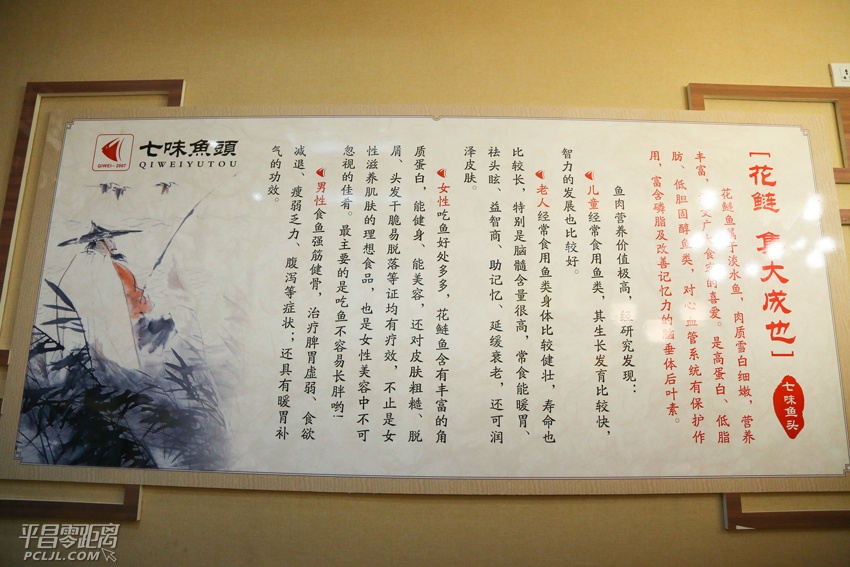 [花鲢 集大成也]
七味鱼头
花鲢鱼属于淡水鱼，肉质雪白细嫩，营养
丰富，广大食客的喜爱。是高蛋白、低脂
肪、低胆固醇鱼类，对心血管系统有保护作
用，富含磷脂及改善记忆力的脑垂体后叶素。
鱼肉营养价值极高，经研究发现：
儿童经常食用鱼类，其生长发育比较快，
智力的发展也比较好。
老人经常食用鱼类身体比较健壮，寿命也
比较长，特别是脑髓含量很高，常食能暖胃、
祛头眩、益智商、助记忆、延缓衰老，还可润
泽皮肤。
女性吃鱼好处多多，花鲢鱼含有丰富的角
质蛋白，能健身、能美容，还对皮肤粗糙、脱
屑、头发干脆易脱落等证均有疗效，不止是女
性滋养肌肤的理想食品，也是女性美容中不可
忽视的佳肴。最主要的是吃鱼不容易长胖哟!
男性食鱼强筋健骨，治疗脾胃虚弱、食欲
减退、瘦弱乏力、腹泻等症状；还具有暖胃补
气的功效。
七味魚頭
QIWEIYUTOU
QIWEI 2007
平昌零距离
PCLJL.COM